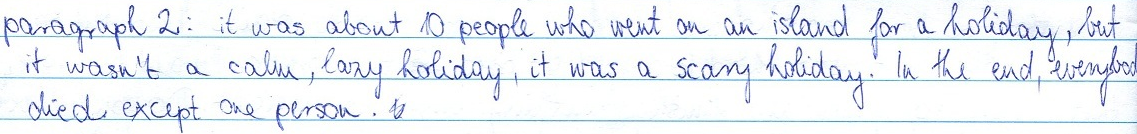 paragraph 2: it was about 10 people who went on an island for a holiday, but
it wasn't a calm, lazy holiday, it was a scary holiday. In the end, everybod
died except one person.